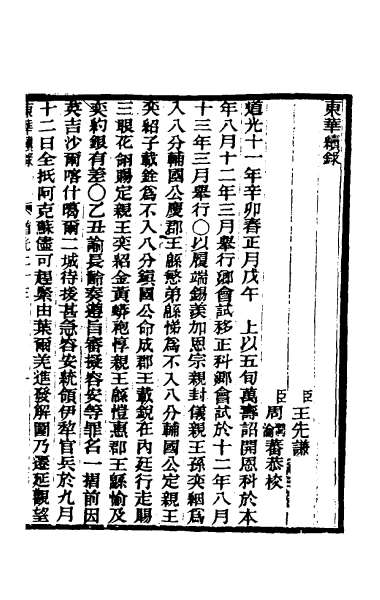 東華續錄
臣王先謙
臣周潤蕃
瀹蕃恭校
道光十一年辛卯春正月戊午　上以五旬萬壽詔開恩科於本
年八月十二年三月舉行鄉會試移正科鄉會試於十二年八月
十三年三月舉行○以履端錫羡加恩宗親封儀親王孫奕絪為
入八分輔國公慶郡王緜慜弟緜悌為不入八分輔國公定親王
奕紹子載銓為不入八分鎭國公命成郡王載銳在內廷行走賜
三眼花翎賜定親王奕紹金黃蟒袍惇親王緜愷惠郡王緜愉及
奕約銀有差○乙丑諭長齡奏遵旨審擬容安等罪名一摺前因
英吉沙爾喀什噶爾二城待援甚急容安統領伊犂官兵於九月
十二日全抵阿克蘇儘可起桊由葉爾羌進發解圍乃遷延觀望
東華續錄